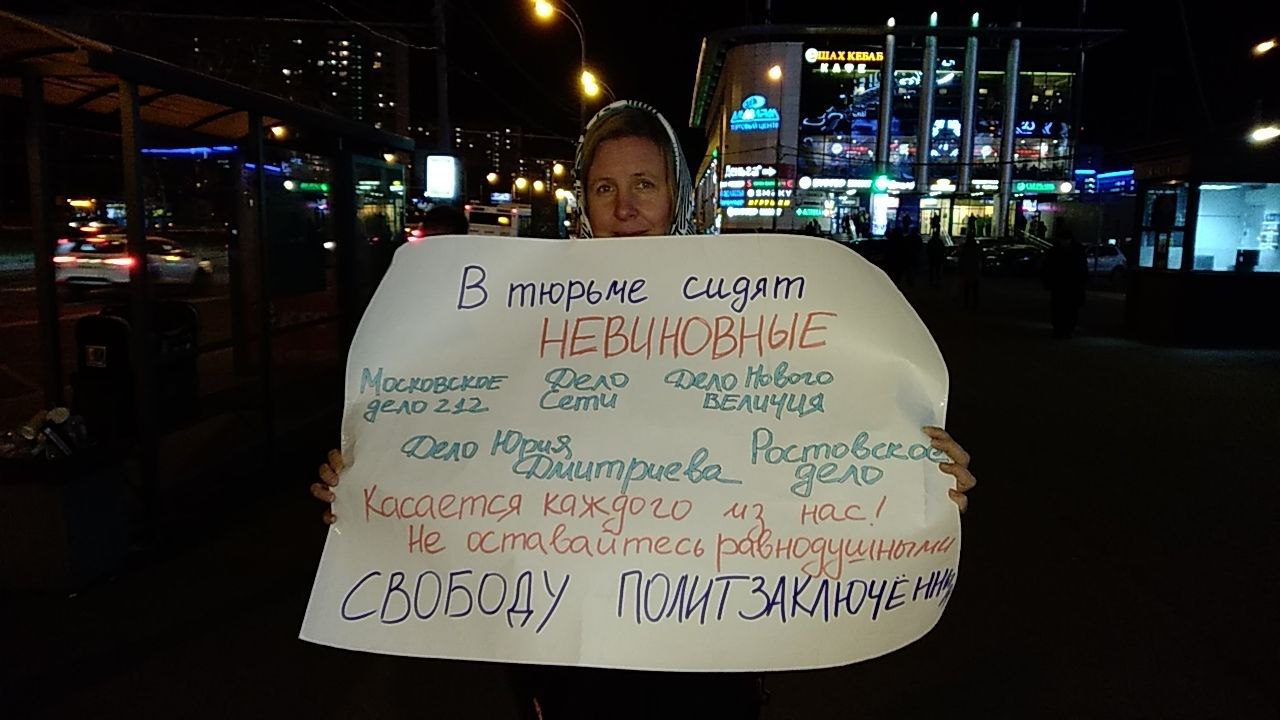 ШАХ КЕБАБ
КАФЕ
ТОРГОВЫЙ ЦЕНТР
Деньга
В тюрьме сидят
НЕВИНОВНЫЕ
Московское дело 212
Дело Сети
Дело Нового величия
Дело Юрия Дмитриева
Ростовское дело
Касается каждого из нас!
Не оставайтесь равнодушными
СВОБОДУ ПОЛИТЗАКЛЮЧЁНН